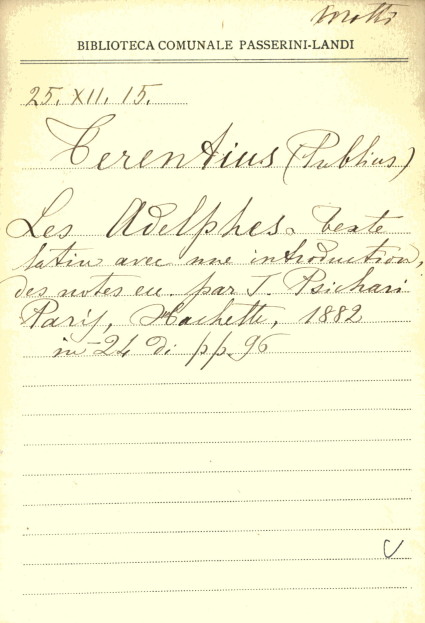 BIBLIOTECA COMUNALE PASSERINI-LANDI
25. XII. 15.
Terentius (Publius)
Les Adelphes. Texte
latin avec une introduction,
des notes ecc. par J. Psichari
Paris, Hachette, 1882
in-24 di pp. 96